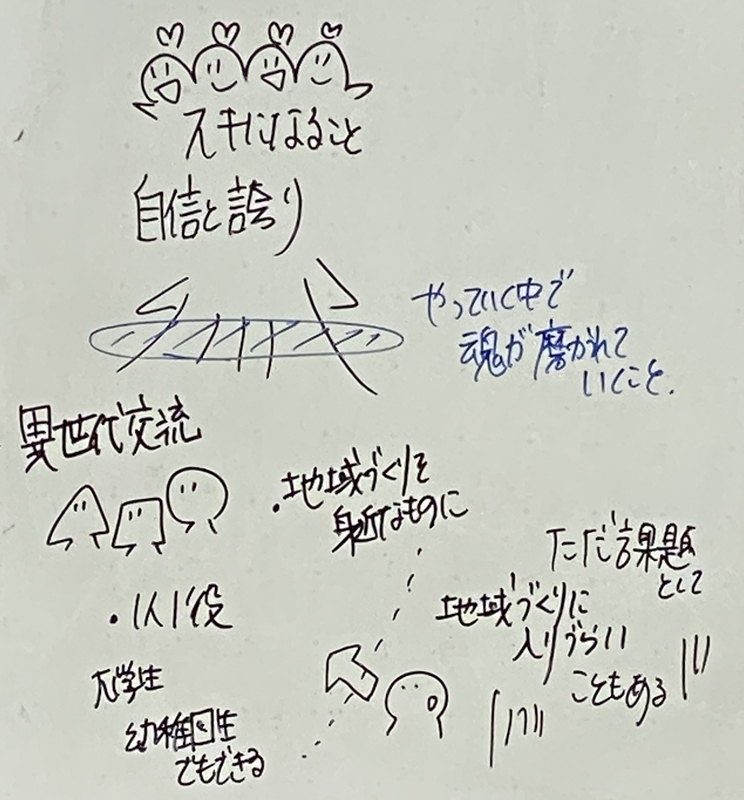 スキになること
自信と誇り
やっていく中で
魂が磨かれて
いくこと.
異世代交流
・地域づくりを
身近なものに
ただ課題
として
地域づくりに
入りづらい
こともある
・1人1役
大学生
幼稚园生
でもできる